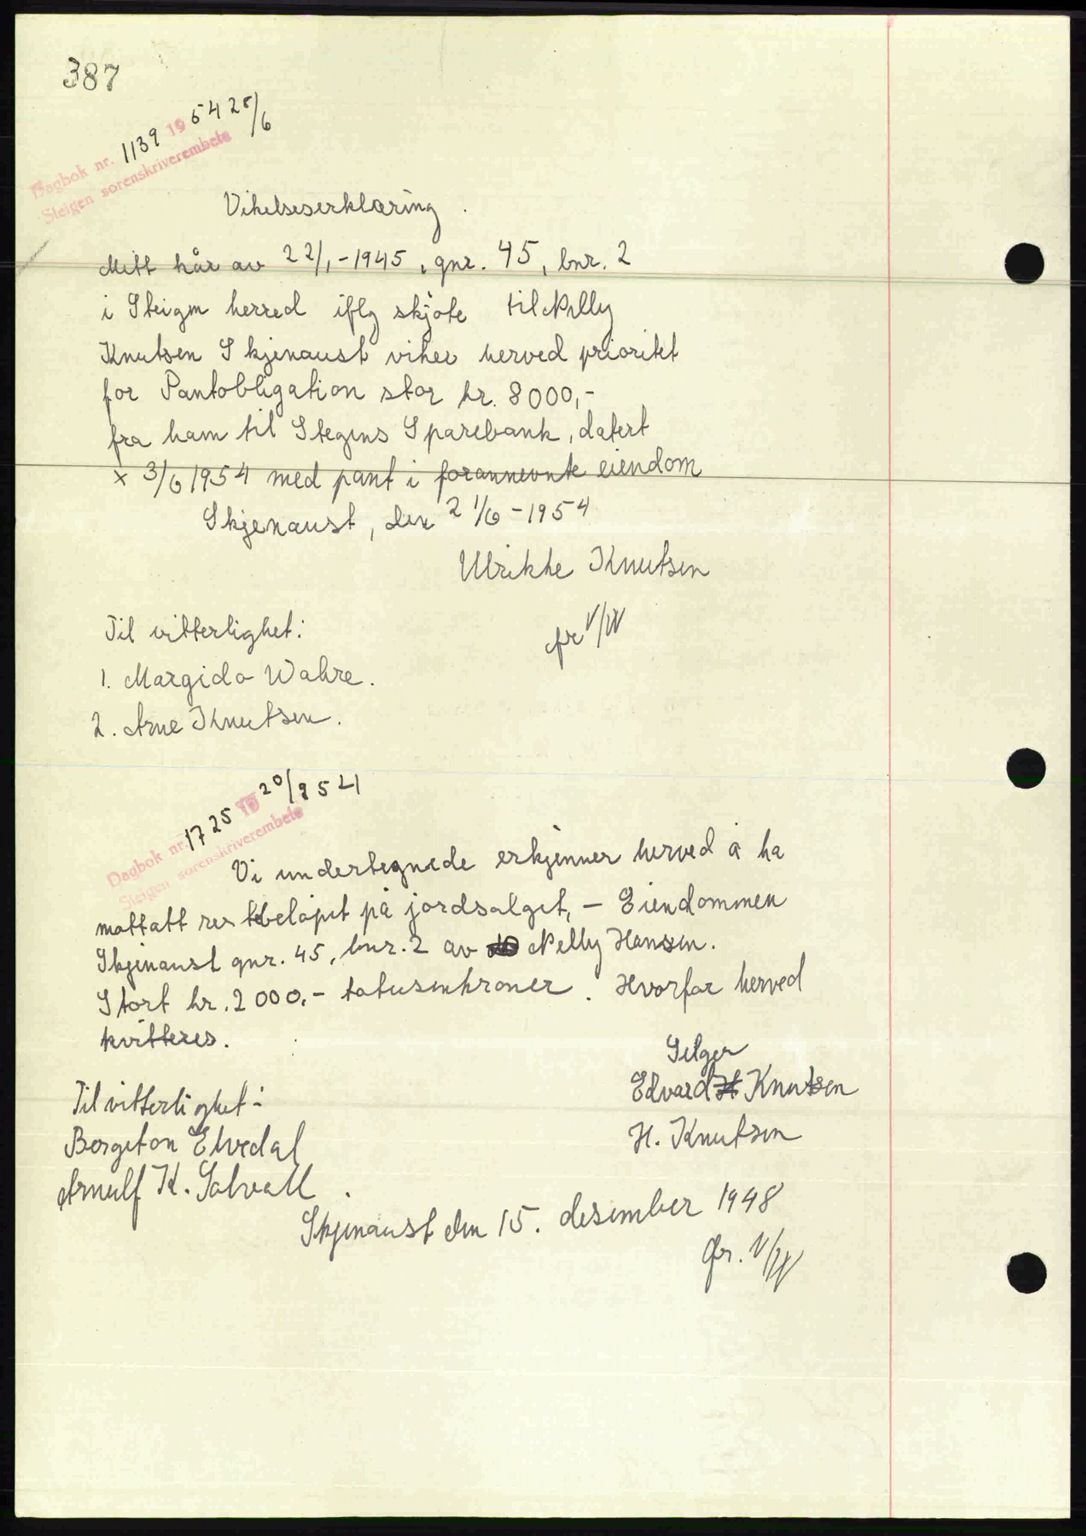 387
Dagbok nr. 1139 1954 28/6
Steigen sorenskriverembete
Vikelseserklæring.
Mitt kår av 22/1-1945, gnr. 45, bnr. 2
i Steigen herred iflg skjøte til Nelly
Knutsen Skjenaust viker herved prioritet
for Pantobligation stor kr. 8000,-
fra ham til Stegens Sparebank, datert
x 3/6 1954 med pant i forannevnte eiendom
Skjenaust, den 21/6-1954
Ulrikke Knutsen
Til vitterlighet:
1. Margido Wahre.
2. Arne Knutsen.
Dagbok nr. 1725 19 20/9 54
Steigen sorenskriverembete
Vi undertegnede erkjenner herved å ha
mottatt restbeløpet på jordsalget, - Eiendommen
Skjenaust gnr. 45, bnr. 2 av Nelly Hansen.
Stort kr. 2000,- totusenkroner. Hvorfor herved
kvitteres.
Selger
Edvard Knutsen
H. Knutsen
Til vitterlighet:
Bergeton Elvedal
Arnulf K. Solvoll.
Skjenaust den 15. desember 1948